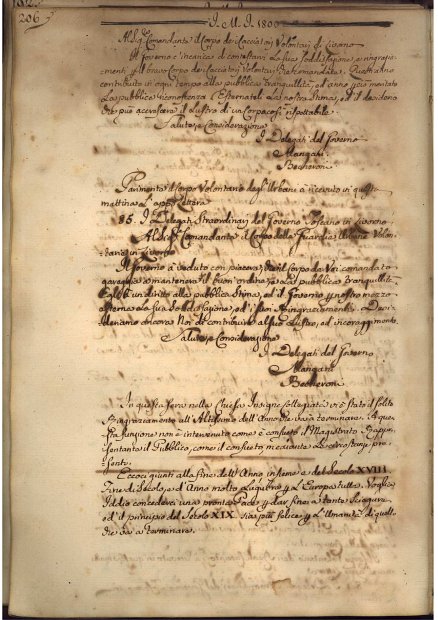 206
I. M. I. 1800
Al Sig.r Comandante il Corpo dei Cacciatori Volontarj di Livorno
Il Governo è incaricato di contestarvi la sua soddisfazione, e i ringrazia-
menti, al bravo Corpo dei Cacciatori Volontarj
contribuito in ogni tempo alla pubblica tranquillità, ed anno meritato
la pubblica riconoscenza
che può accrescere il lustro di un Corpo così rispettabile.
Salute, e Considerazione
I Delegati del Governo
Mangani
Becheroni
Parimente il Corpo Volontario degl'Urbani à ricevuto in questa
mattina l'app.a Lettera
85. I Delegati Straordinarj del Governo Toscano in Livorno
Al Sig.r Comandante il Corpo della Guardia Urbana Volon-
taria in Livorno
Il Governo à veduto con piacere, che il Corpo da Voi comandato
gareggia a mantenere il buon ordine, e la pubblica tranquillità.
Egli à un diritto alla pubblica stima, ed il Governo per nostro mezzo
esterna la sua soddisfazione, ed i suoi ringraziamenti. Desi-
deriamo ancora Noi di contribuire al suo lustro, ed incoraggimento.
Salute, e Considerazione
I Delegati del Governo
Mangani
Becheroni
In questa sera nella Chiesa Insigne Collegiata vi è stato il solito
ringraziamento all'Altissimo dell'Anno che và à terminare. A que-
sta funzione non è intervenuto come è consueto il Magistrato rappre-
sentante il Pubblico, come il consueto mediante le circostanze pre-
senti.
Eccoci giunti alla fine dell'Anno insieme, e del Secolo XVIII.
Fine di Secolo, ed Anno molto lacrime per l'Europa tutta. Voglia
Iddio concederci una pronta Pace, e dar fine a tante sciagure,
ed il principio del Secolo XIX. sia più felice per l'Umanità di quello
che và a terminare.